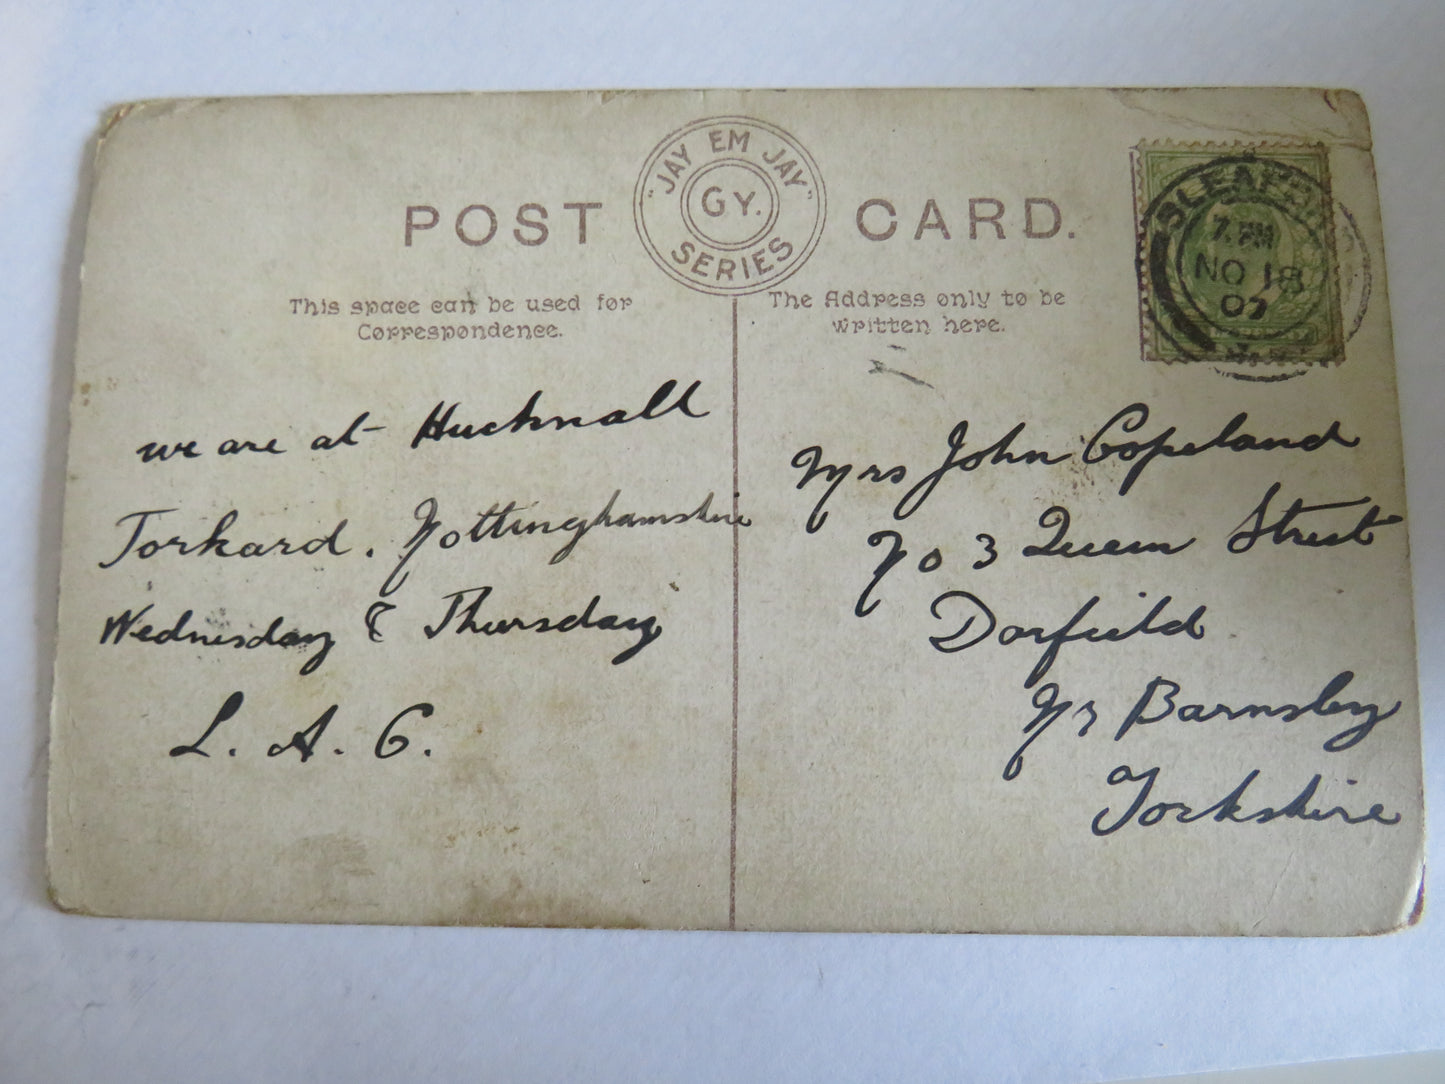 POST CARD.
"JAY EM JAY"
GY.
SERIES
This space can be used for
Correspondence.
The Address only to be
written here.
SLEAFORD
7. PM
NO 18
07
we are at Hucknall
Torkard. Nottinghamshire
Wednesday & Thursday
L. A. C.
Mrs John Copeland
No 3 Queen Street
Dorfield
Nr Barnsley
Yorkshire